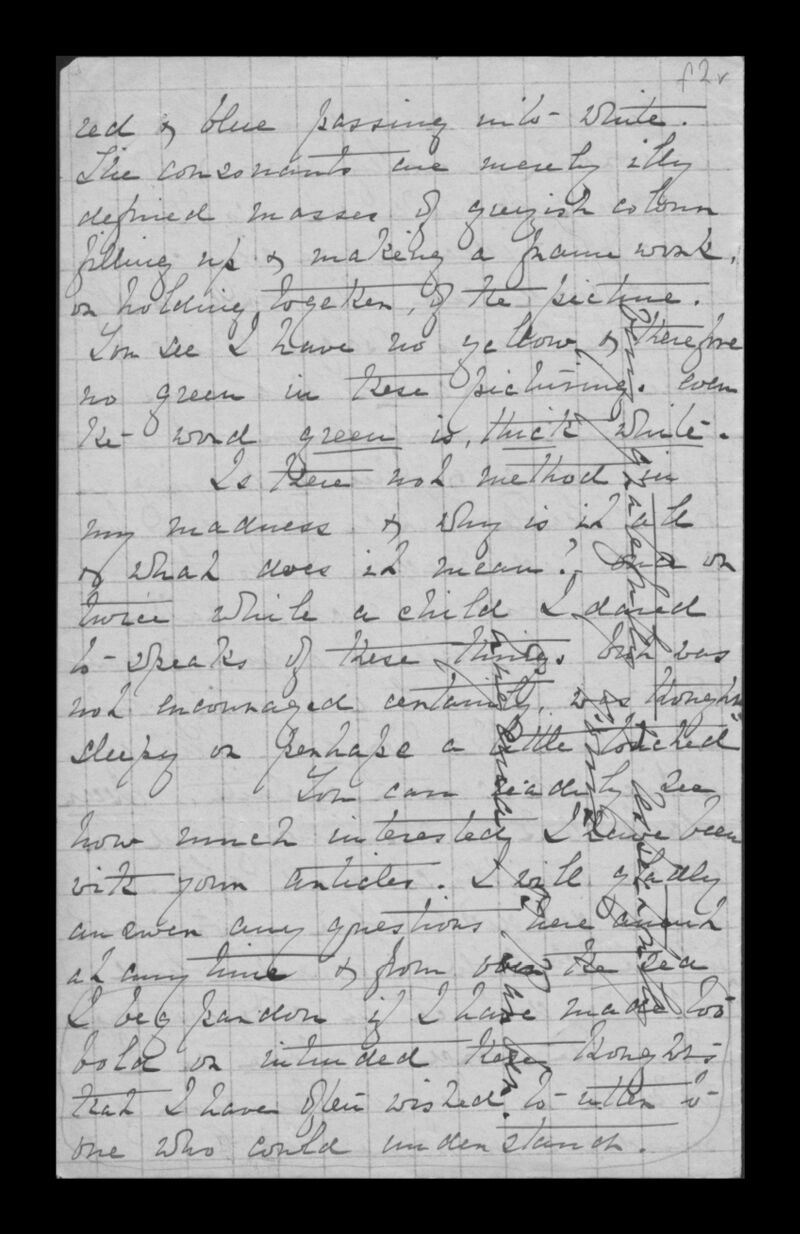 f2v
red & blue passing into white.
The consonants are merely illy
defined masses of greyish colour
filling up & making a frame work,
or holding together, of the picture.
You see I have no yellow & therefore
no green in these picturing. even
the word green is, thick white.
Is there not method in
my madness & why is it all
& what does it mean? once or
twice while a child I dared
to speak of these things but was
not encouraged certainly, was thought
sleepy or perhaps a little touched
You can readily see
how much interested I have been
with your articles. I will gladly
answer any questions here
at any time & from over the sea
I beg pardon if I have made too
bold or intruded these thoughts
that I have often wished to utter to
one who could understand.